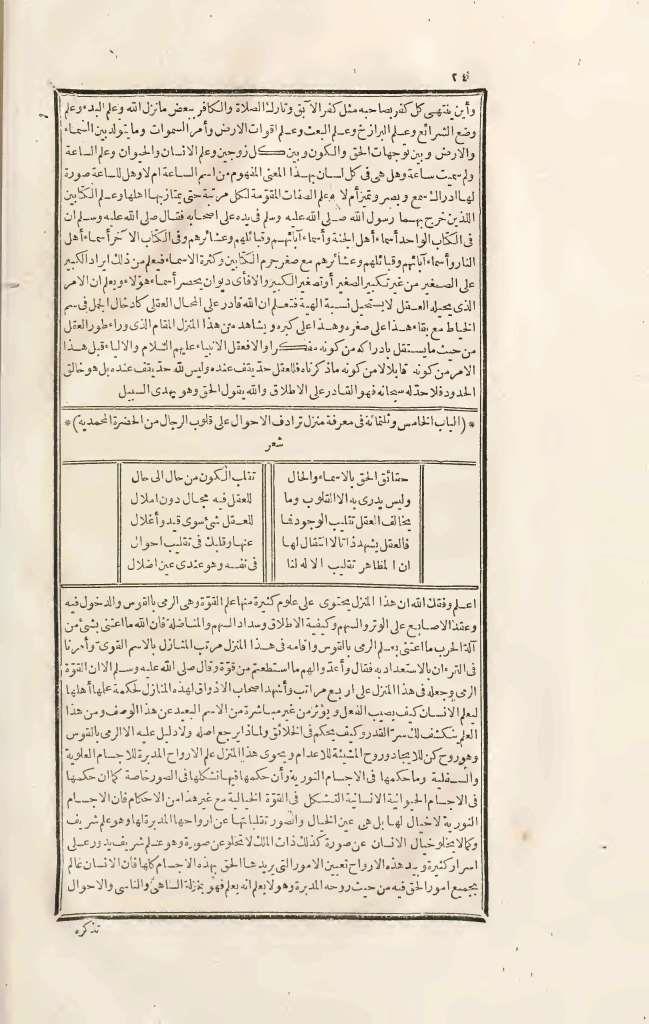 ٢٤
وأين ينتهى كل كفر بصاحبه مثل كفر الآبق وتارك الصلاة والكافر ببعض ما نزل الله وعلم البدء وعلم
وضع الشرائع وعلم البرازخ وعلم البعث وعلم اقوات الارض وأمر السموات وما يتولد بين السماء
والارض وبين توجهات الحق والكون وبين كل زوجين وعلم الانسان والحيوان وعلم الساعة
ولم سميت ساعة وهل هى فى كل لسان بهذا المعنى المفهوم من اسم الساعة ام لا وهل للساعة صورة
لها ادراك سمع وبصر وتميز أم لا وعلم الصفات المقومة لكل مرتبة حتى يمتاز بها اهلها وعلم الكتابين
اللذين خرج بهما رسول الله صلى الله عليه وسلم فى يده على اصحابه فقال صلى الله عليه وسلم ان
فى الكتاب الواحد أسماء أهل الجنة وأسماء آبائهم وقبائلهم وعشائرهم وفى الكتاب الآخر أسماء أهل
النار وأسماء آبائهم وقبائلهم وعشائرهم مع صغر جرم الكتابين وكثرة الاسماء فيعلم من ذلك ايراد الكبير
على الصغير من غير تكبير الصغير أو تصغير الكبير والا فأى ديوان يحصر أسماء هؤلاء ويعلم ان الامر
الذى يحيله العقل لا يستحيل نسبة الهية فتعلم ان الله قادر على المحال العقلى كادخال الجمل فى سم
الخياط مع بقاء هذا على صغره وهذا على كبره ويشاهد من هذا المنزل المقام الذى وراء طور العقل
من حيث ما يستقل بادراكه من كونه مفكرا والا فعقل الانبياء عليهم السلام والاولياء قبل هذا
الامر من كونه قابلا لا من كونه ماذكرناه فللعقل حد يقف عنده وليس لله حد يقف عنده بل هو خالق
الحدود فلا حد له سبحانه فهو القادر على الاطلاق والله يقول الحق وهو يهدى السبيل
* (الباب الخامس وثلثمائة فى معرفة منزل ترادف الاحوال على قلوب الرجال من الحضرة المحمدية) *
شعر
حقائق الحق بالاسماء والحال تقلب الكون من حال الى حال
وليس يدرى به الا القلوب وما للعقل فيه مجال دون املال
يخالف العقل تقليب الوجود فما للعقل شئ سوى قيد وأغلال
فالعقل يشهد ذاتا لا انتقال لها عنها وقلبك فى تقليب احوال
ان المظاهر تقليب الاله لنا فى نفسه وهو عندى عين اضلال
اعلم وفقك الله ان هذا المنزل يحتوى على علوم كثيرة منها علم القوة وهى الرمى بالقوس والدخول فيه
وعقد الاصابع على الوتر والسهم وكيفية الاطلاق وسداد السهم والمناضلة فان الله ما اعتنى بشئ من
آلة الحرب ما اعتنى بعلم الرمى بالقوس واقامه فى هذا المنزل مرتب المنازل بالاسم القوى وأمرنا
فى القرءان بالاستعداد به فقال وأعدوا لهم ما استطعتم من قوة وقال صلى الله عليه وسلم الا ان القوة
الرمى وجعله فى هذا المنزل على اربع مراتب وأشهدا اصحاب الاذواق لهذه المنازل لحكمة علمها أهلها
ليعلم الانسان كيف يصيب الفعل ويؤثر من غير مباشرة من الاسم البعيد عن هذا الوصف ومن هذا
العلم ينكشف لك سر القدر وكيف يحكم فى الخلائق ولماذا يرجع اصله ولا دليل عليه الا الرمى بالقوس
وهو روح كن للايجاد وروح المشيئة للاعدام ويحوى هذا المنزل علم الارواح المدبرة للاجسام العلوية
والسفلية وما حكمها فى الاجسام النورية وأن حكمها فيها تشكلها فى الصور خاصة كما ان حكمها
فى الاجسام الحيوانية الانسانية التشكل فى القوة الخيالية مع غير هذا من الاحكام فان الاجسام
النورية لا خيال لها بل هى عين الخيال والصور تقلباتها عن ارواحها المدبرة لها وهو علم شريف
وكما لا يخلو خيال الانسان عن صورة كذلك ذات الملك لا تخلو عن صورة وهو علم شريف يدور على
اسرار كثيرة وبيد هذه الارواح تعيين الامور التى يريدها الحق بهذه الاجسام كلها فان الانسان عالم
بجميع امور الحق فيه من حيث روحه المدبرة وهو لا يعلم انه يعلم فهو بمنزلة الساهى والناسى والاحوال
تذكره